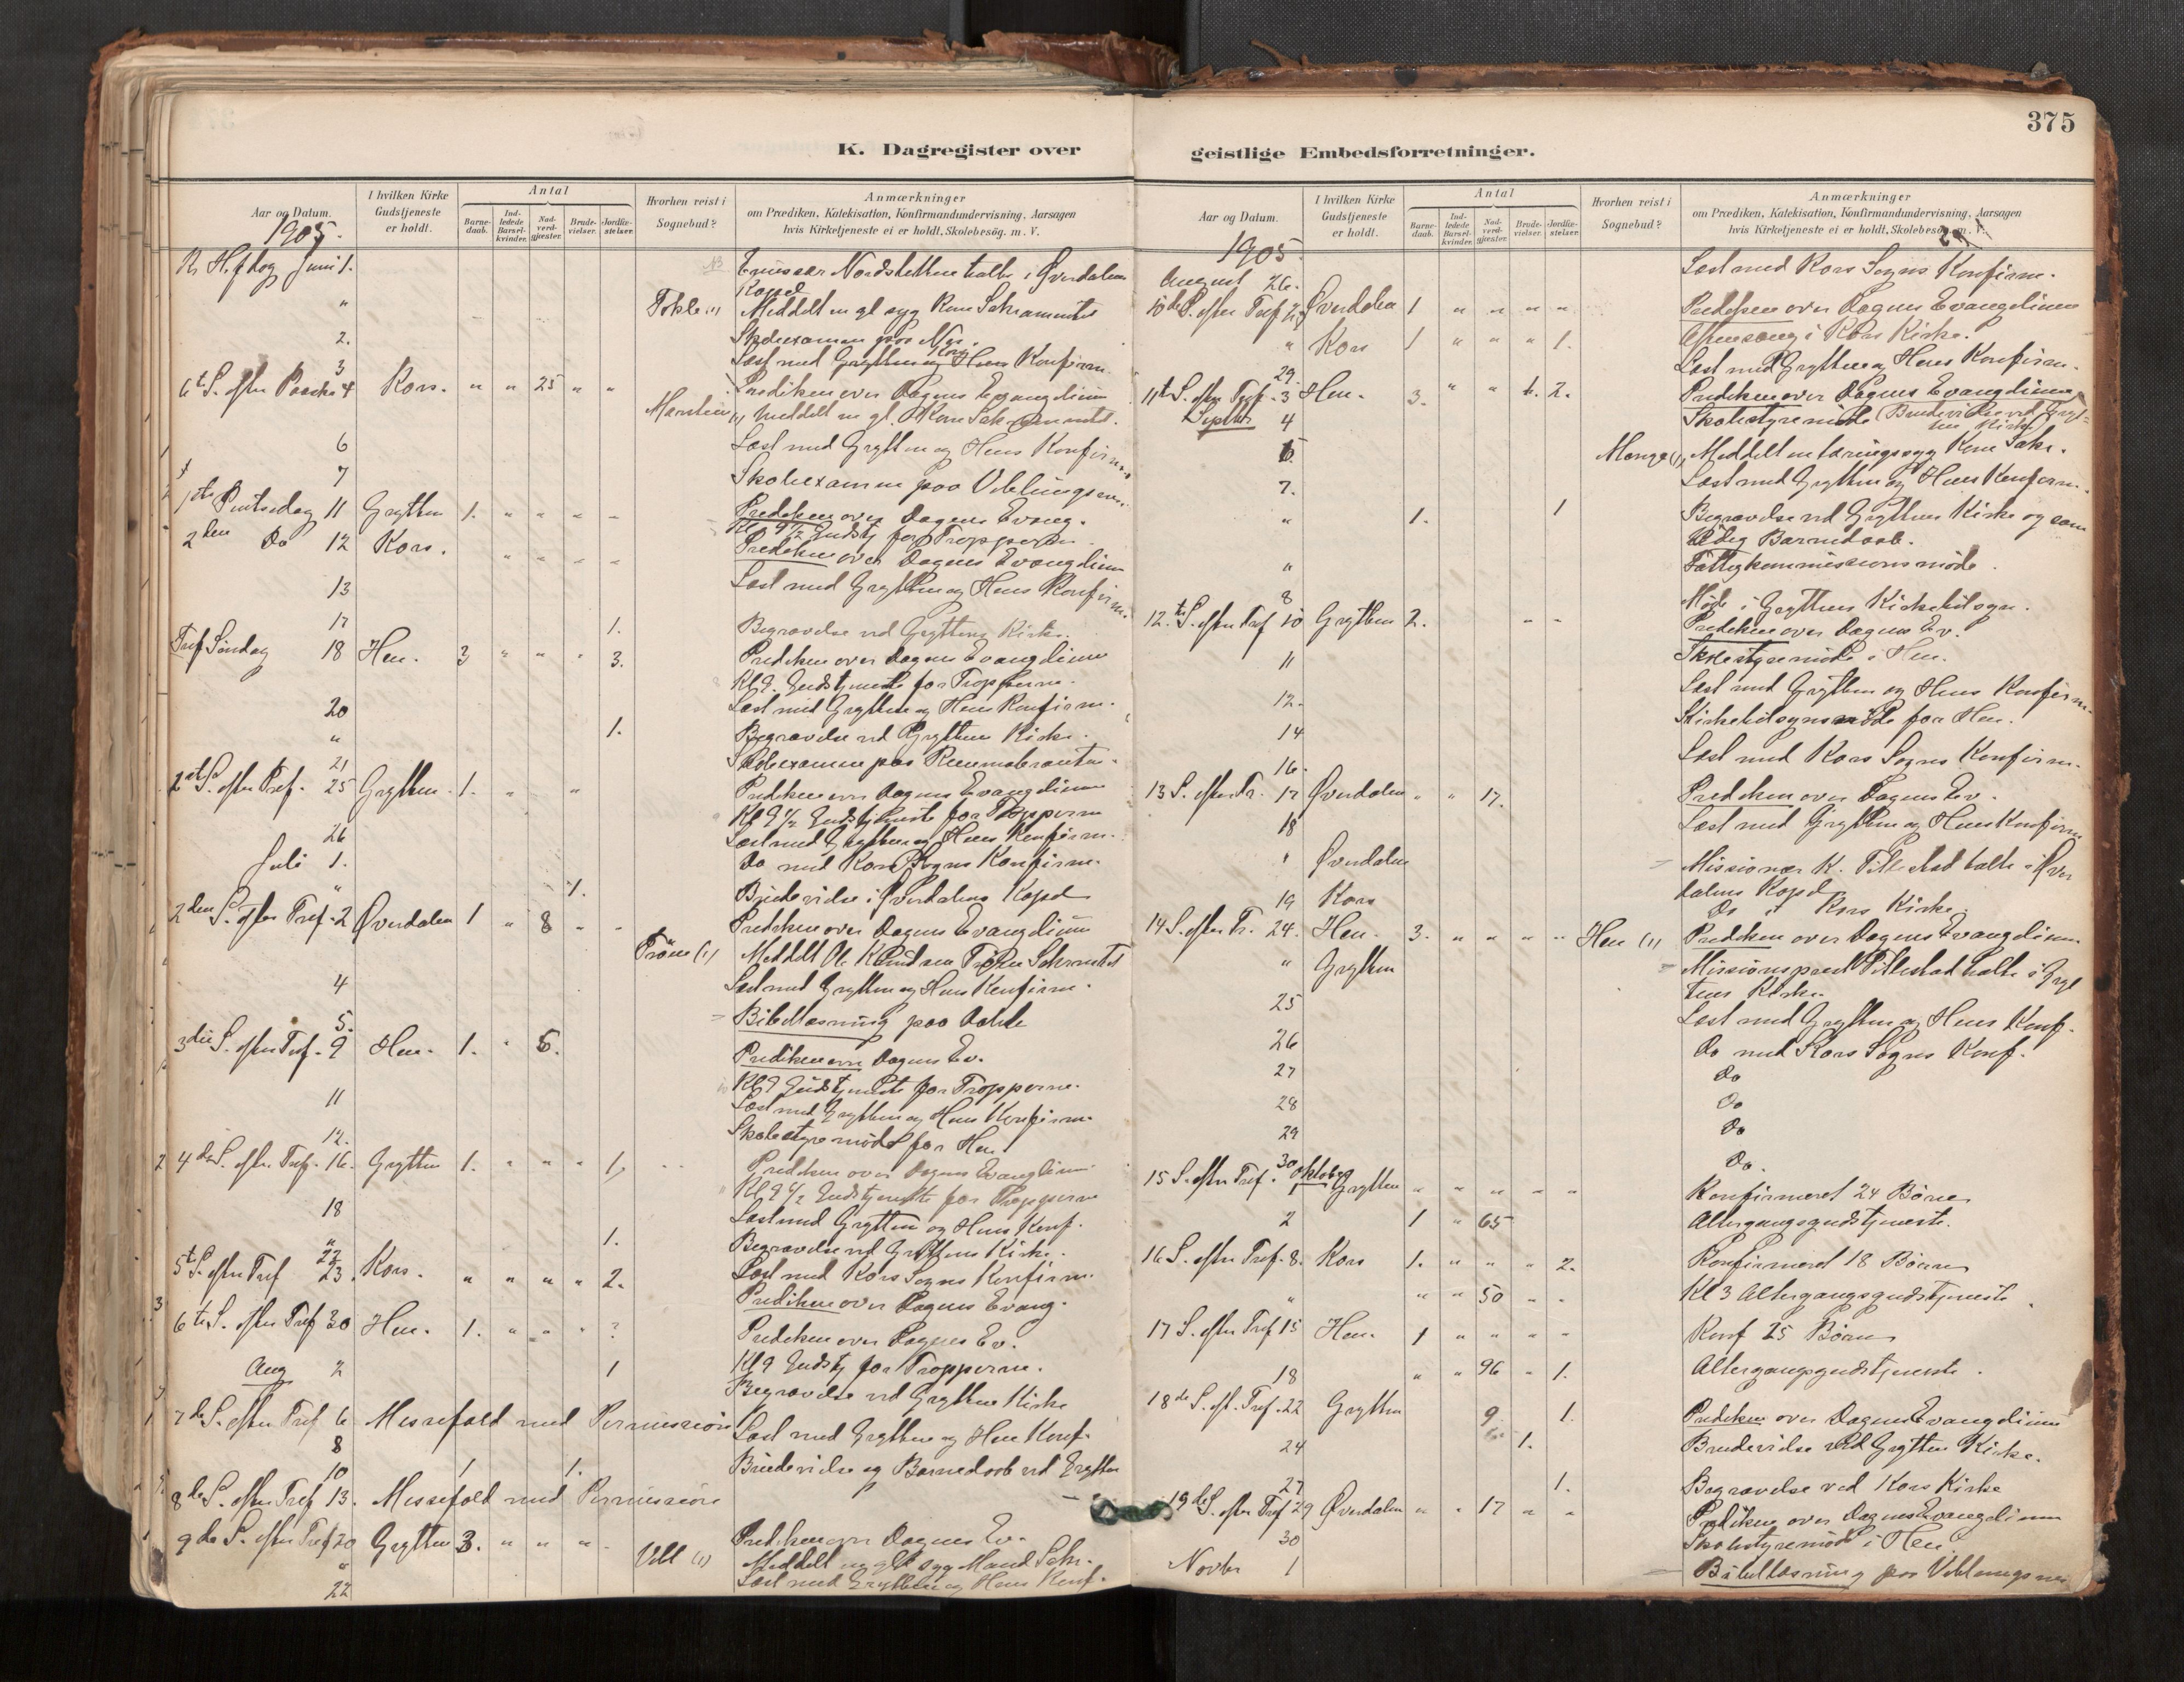 375
K. Dagregister over
Aar og Datum.
I hvilken Kirke Gudstjeneste er holdt.
Antal
Barnedaab.
Indledede Barselkvinder.
Nadverdgjæster.
Brudevielser.
Jordfæstelser.
Hvorhen reist i Sognebud?
Anmærkninger
om Prædiken, Katekisation, Konfirmandundervisning, Aarsagen
hvis Kirketjeneste ei er holdt, Skolebesøg. m. V.
1905.
Juni 1. Emissær talte i Øverdalens
Kapel
" Meddelt en gl syg Kone Sakramentet
2. Skoleexamen paa
3 Læst med Grytten og Hens Konfirm.
6te S. efter Paaske 4 Kors. " " 25 " " Prædiken over Dagens Evangelium
Marstein (1) Meddelt en gl. Kone Sakramentet.
6 Læst med Grytten og Hens Konfirm.
7 Skoleexamen paa Veblungsnes.
1ste Pintsedag 11 Grytten 1. " " " " Prædiken over Dagens Evang.
Kl 9 1/2 Gudstj for Tropperne
2den Do 12 Kors. " " " " Prædiken over Dagens Evangelium
13 Læst med Grytten og Hens Konfirm.
17 1. Begravelse ved Gryttens Kirke.
Tref Søndag 18 Hen. 3 " " " 3. Prædiken over Dagens Evangelium
Kl 9. Gudstjeneste for Tropperne.
20 Læst med Grytten og Hens Konfirm.
" 1. Begravelse ved Gryttens Kirke.
21 Skoleexamen paa
1ste S. efter Tref. 25 Grytten. 1. " " Prædiken over Dagens Evangelium
Kl 9 1/2 Gudstjeneste for Tropperne
26 Læst med Grytten og Hens Konfirm.
Juli 1. Do med Kors Sogns Konfirm.
" 1. Brudevielse i Øverdalens Kapel
2den S. efter Tref. 2 Øverdalen 1 " 8 " " Prædiken over Dagens Evangelium
(1) Meddelt
4 Læst med Grytten og Hens Konfirm.
5. Bibellæsning paa
3die S. efter Tref. 9 Hen. 1. " 6. Prædiken over Dagens Ev.
Kl 9 Gudstjeneste for Tropperne.
11 Læst med Grytten og Hens Konfirm.
12. Skolestyremøde for Hen
4de S. efter Tref. 16. Grytten 1. " " " 1. Prædiken over Dagens Evangelium
Kl 9 1/2 Gudstjeneste for Tropperne
18 Læst med Grytten og Hens Konf.
" 1. Begravelse ved Gryttens Kirke.
22 Læst med Kors Sogns Konfirm.
5te S. efter Tref 23. Kors. " " " " 2. Prædiken over Dagens Evang.
6te S. efter Tref 30 Hen. 1. " " " ? Prædiken over Dagens Ev.
Kl 9 Gudstj for Tropperne.
Aug 2 1 Begravelse ved Gryttens Kirke
7de S. efter Tref 6 Messefald med Permission
8 Læst med Grytten og Hen Konf.
10 1. 1. Brudevielse og Barnedaab ved Grytten
8de S. efter Tref 13. Messefald med Permission
9de S. efter Tref 20 Grytten 3. " " " Prædiken over Dagens Ev.
" (1) Meddelt en gl syg Mand Sakr.
22 Læst med Grytten og Hens Konf.
geistlige Embedsforretninger.
Aar og Datum.
I hvilken Kirke Gudstjeneste er holdt.
Antal
Barnedaab.
Indledede Barselkvinder.
Nadverdgjæster.
Brudevielser.
Jordfæstelser.
Hvorhen reist i Sognebud?
Anmærkninger
om Prædiken, Katekisation, Konfirmandundervisning, Aarsagen
hvis Kirketjeneste ei er holdt, Skolebesøg. m. V.
1905.
August 26. Læst med Kors Sogns Konfirm.
10de S. efter Tref 27 Øverdalen 1 " " " " Prædiken over Dagens Evangelium
" Kors 1 " " " 1. Aftensang i Kors Kirke.
29. Læst med Grytten og Hens Konfirm.
11te S. efter Tref. 3 Hen. 3. " " 1. 2. Prædiken over Dagens Evangelium
Septbr 4 Skolestyremøde (Brudevielse ved Gryttens Kirke)
6. (1) Meddelt en tæringssyg Kone Sakr.
7. Læst med Grytten og Hens Konfirm.
" 1. 1 Begravelse ved Gryttens Kirke og samtidig Barnedaab.
" Fattigkommissionsmøde.
8 Møde i Gryttens Kirketilsyn.
12te S. efter Tref 10 Grytten 2. " " Prædiken over Dagens Ev.
11 Skolestyremøde i Hen.
12. Læst med Grytten og Hens Konfirm.
14 Kirketilsynsmøde for Hen.
16. Læst med Kors Sogns Konfirm.
13 S. efter Tr. 17 Øverdalen " " 17. Prædiken over Dagens Ev.
18 Læst med Grytten og Hens Konfirm
" Øverdalen Missionær K. Titlestad talte i Øver
dalens Kapel
19 Kors Do i Kors Kirke.
14 S. efter Tr. 24. Hen. 3. " " " " Hen (1) Prædiken over Dagens Evangelium
" Grytten Missionsprest Titlestad talte i Gryt
tens Kirke.
25 Læst med Grytten og Hens Konf.
26 Do med Kors Sogns Konf.
27 Do
28 Do
29 Do
30 Do.
15 S. efter Tref. Oktober 1 Grytten " " " " " Konfirmeret 24 Børn
2 1 " 65 Altergangsgudstjeneste.
16 S. efter Tref. 8. Kors 1. " " " 2. Konfirmeret 18 Børn
" " " 50 " " Kl 3 Altergangsgudstjeneste.
17 S. efter Tref 15 Hen. 1 " " " " Konf 25 Børn
18 " " 96 " 1. Altergangsgudstjeneste.
18de S. eft. Tref. 22 Grytten 9 1. Prædiken over Dagens Evangelium
24 1. Brudevielse ved Grytten Kirke.
27 1. Begravelse ved Kors Kirke
19de S. efter Tref 29 Øverdalen " " 17 " " Prædiken over Dagens Evangelium
30 Skolestyremøde i Hen
Novbr 1 Bibellæsning paa Veblungsnes